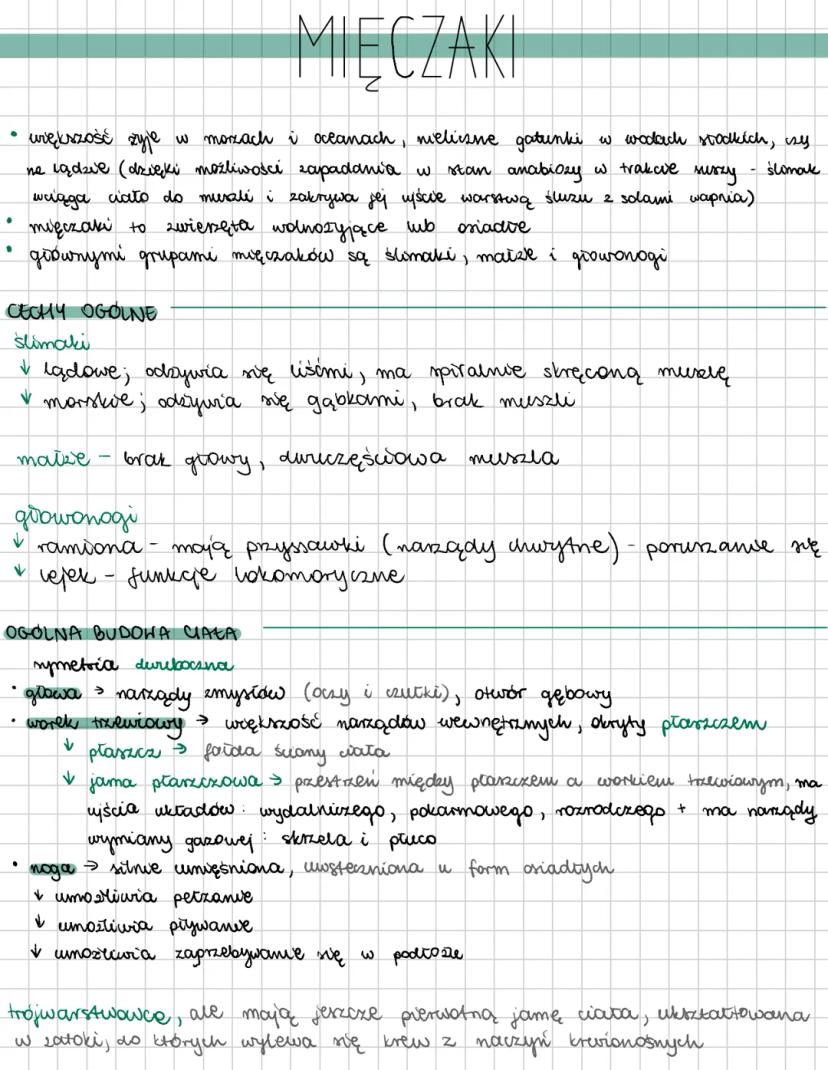 MIĘCZAKI
• większość żyje w morzach i oceanach, nieliczne gatunki w wodach słodkich, czy
na lądzie (dzięki możliwości zapadania w stan anabiozy w trakcie suszy - ślimak
wciąga ciało do muszli i zakrywa jej ujście warstwą śluzu z solami wapnia)
• mięczaki to zwierzęta wolnożyjące lub osiadłe
• głównymi grupami mięczaków są ślimaki, małże i głowonogi
CECHY OGÓLNE
ślimaki
↓ lądowe; odżywia się liśćmi, ma spiralnie skręconą muszlę
↓ morskie; odżywia się gąbkami, brak muszli
małże - brak głowy, dwuczęściowa muszla
głowonogi
↓ ramiona - mają przyssawki (narządy chwytne) - poruszanie się
↓ lejek - funkcje lokomoryczne
OGÓLNA BUDOWA CIAŁA
symetria dwuboczna
• głowa → narządy zmysłów (oczy i czułki), otwór gębowy
• worek trzewiowy → większość narządów wewnętrznych, okryty płaszczem
↓ płaszcz → fałda ściany ciała
↓ jama płaszczowa → przestrzeń między płaszczem a workiem trzewiowym, ma
ujścia układów: wydalniczego, pokarmowego, rozrodczego + ma narządy
wymiany gazowej: skrzela i płuco
• noga → silnie umięśniona, uwsteczniona u form osiadłych
↓ umożliwia pełzanie
↓ umożliwia pływanie
↓ umożliwia zagrzebywanie się w podłoże
trójwarstwowce, ale mają jeszcze pierwotną jamę ciała, ukształtowana
w zatoki, do których wylewa się krew z naczyń krwionośnych